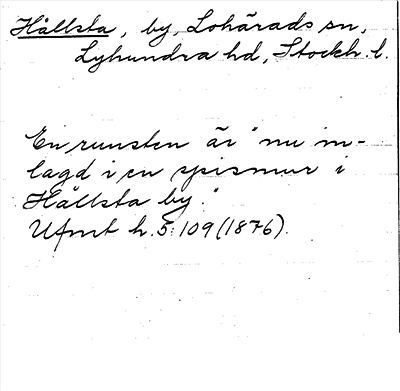 Hållsta, by, Lohärads sn,
Lyhundra hd, Stockh. l.
En runsten är "nu in-
lagd i en spismur i
Hållsta by."
Ufmt h. 5:109 (1876).